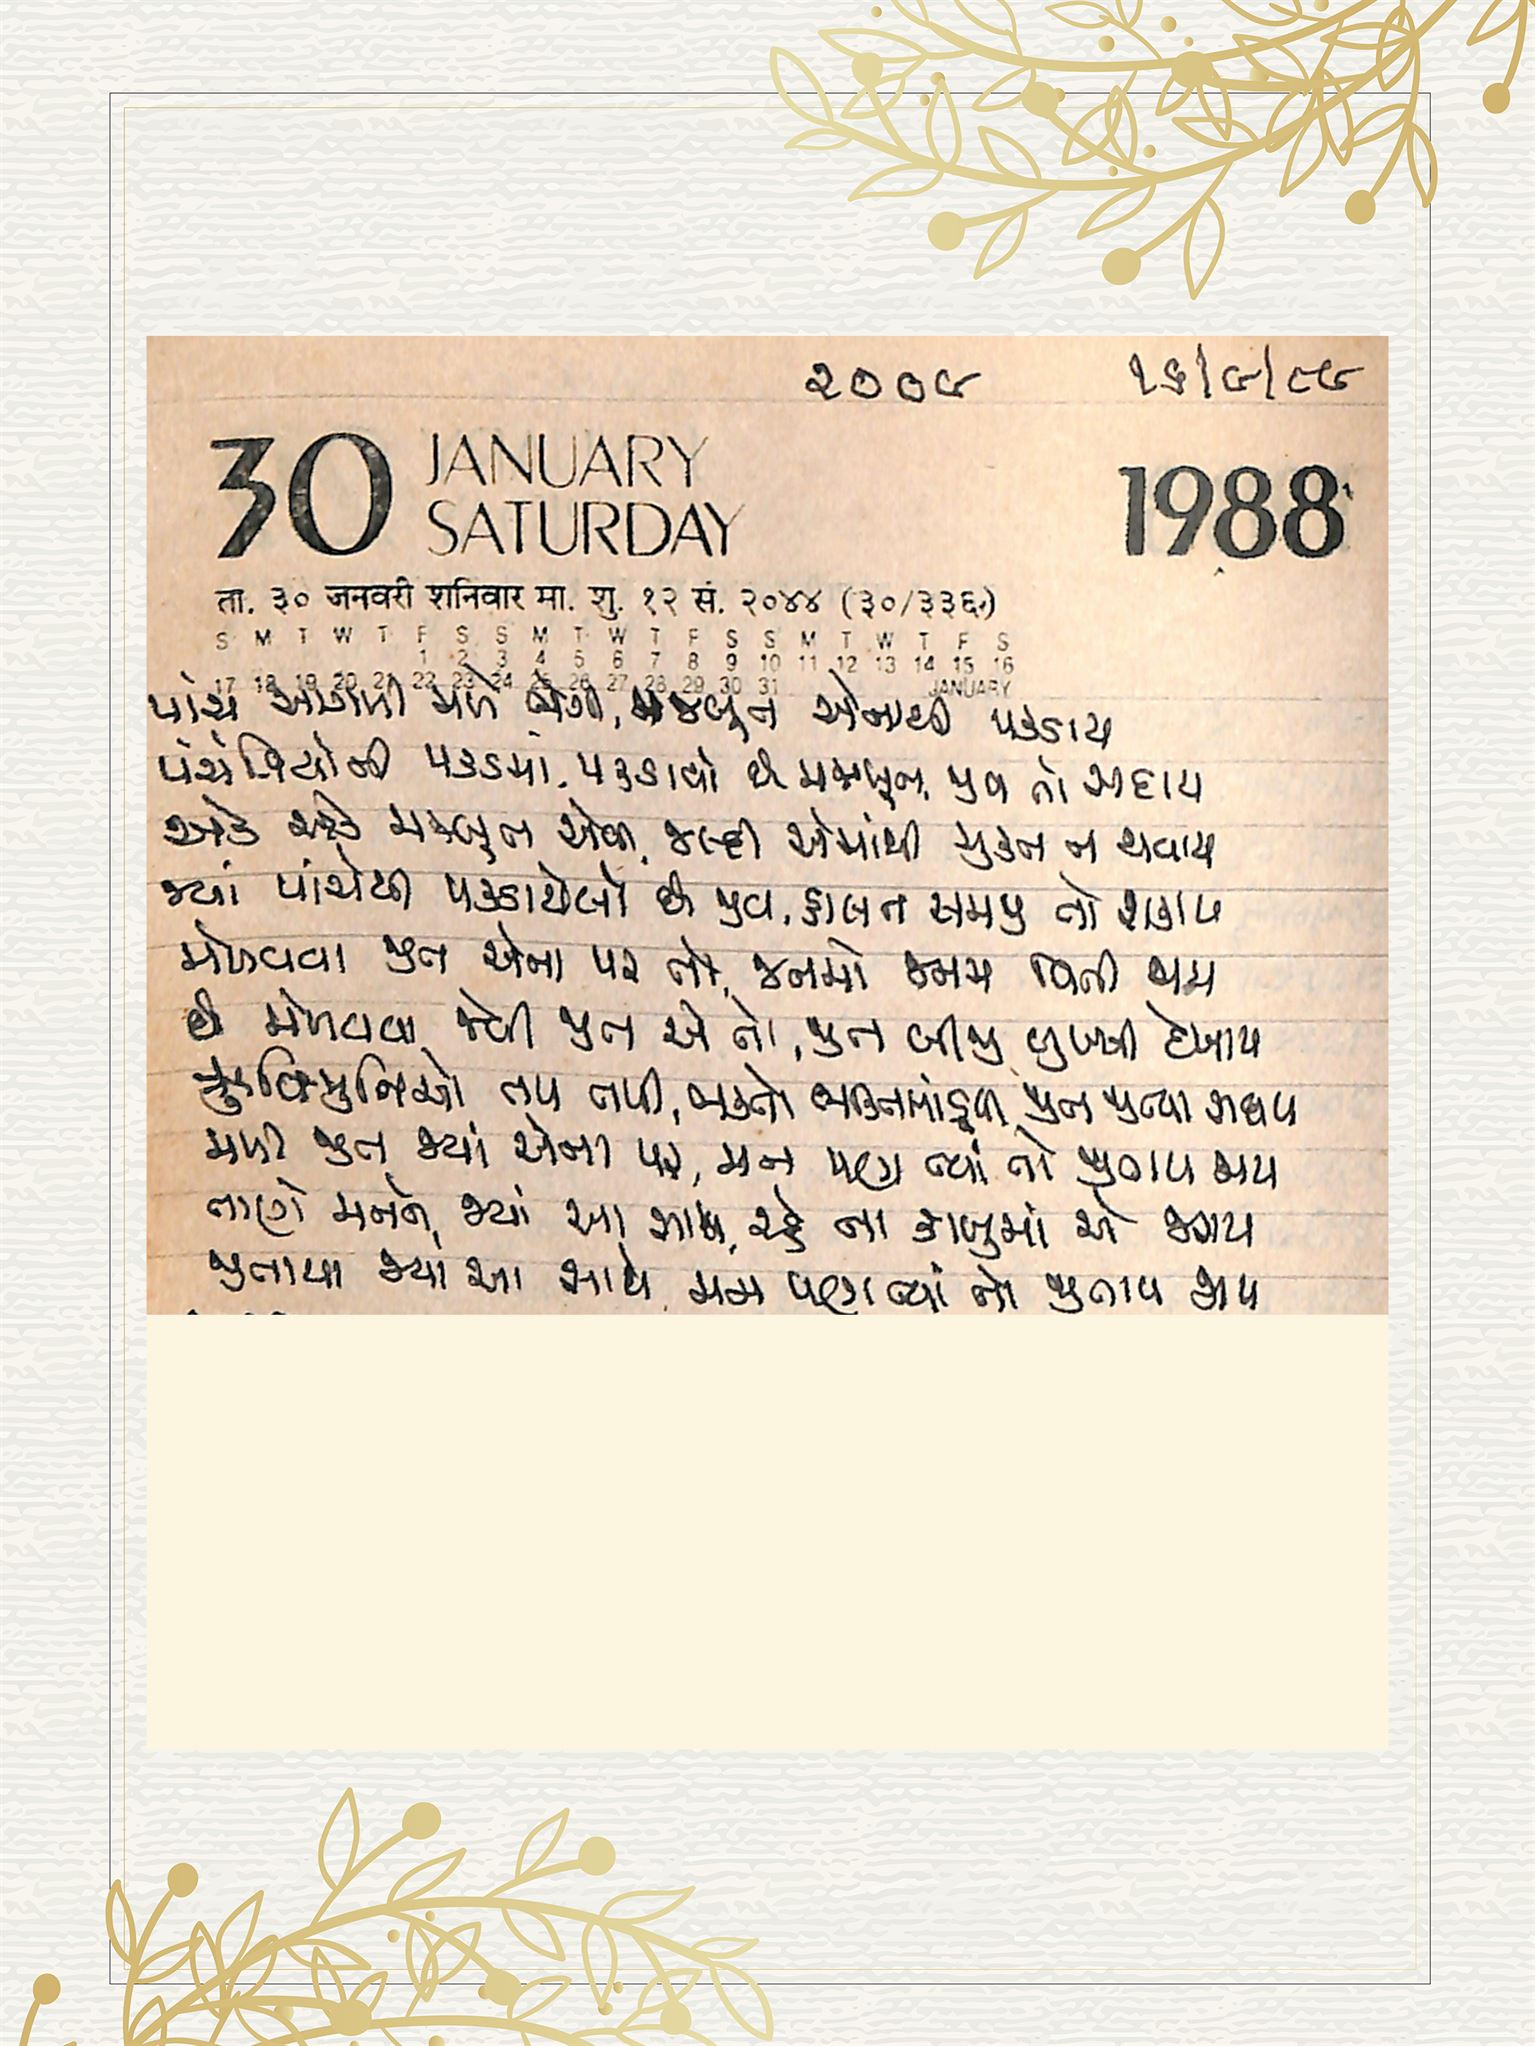 ૨૦૦૯ ૧૬/૯/૮૯
30 JANUARY
SATURDAY
1988
ता. ३० जनवरी शनिवार मा. शु. १२ सं. २०४४ (३०/३३६)
S M T W T F S S M T W T F S S M T W T F S
1 2 3 4 5 6 7 8 9 10 11 12 13 14 15 16
17 18 19 20 21 22 23 24 25 26 27 28 29 30 31 JANUARY
પાંચે આંગળી મળે ભેગી, મજબૂત એનાથી પકડાય
પંચેન્દ્રિયોની પકડમાં પકડાયો છે મજબૂત, જીવ તો સદાય
મજબૂત એવી, જલ્દી એમાંથી મુક્ત ન થવાય
જ્યાં પાંચેથી પકડાયેલો છે જીવ, હાલત સમજી તો શકાય
મેળવવા જીત એના પર તો, જનમો જનમ વિતી જાય
છે મેળવવા જેવી જીત એ તો, જીત બીજી લુખ્ખી દેખાય
ઋષિમુનિઓ તપ તપી, ભક્તો ભક્તિમાં જીત જીત્યા સદાય
મળી જીત જ્યાં એના પર, મન પણ ત્યાં તો જીતાય જાય
તાણે મનને, જ્યાં આ સાથ, રહે ના કાબુમાં એ જરાય
જીતાયા જ્યાં આ સાથે મન પણ ત્યાં તો જીતાય જાય